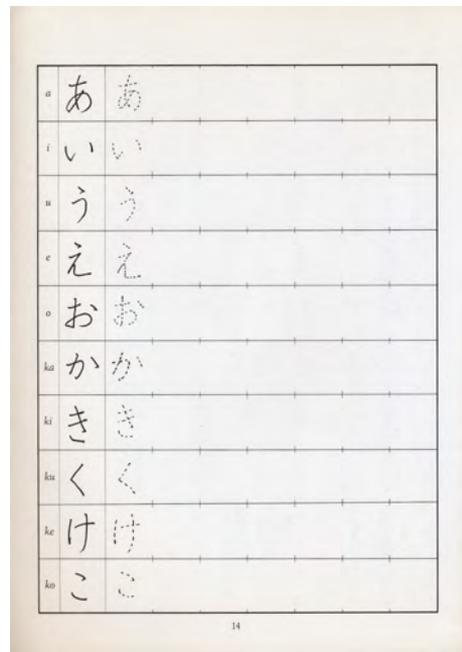 a あ あ
i い い
u う う
e え え
o お お
ka か か
ki き き
ku く く
ke け け
ko こ こ
14